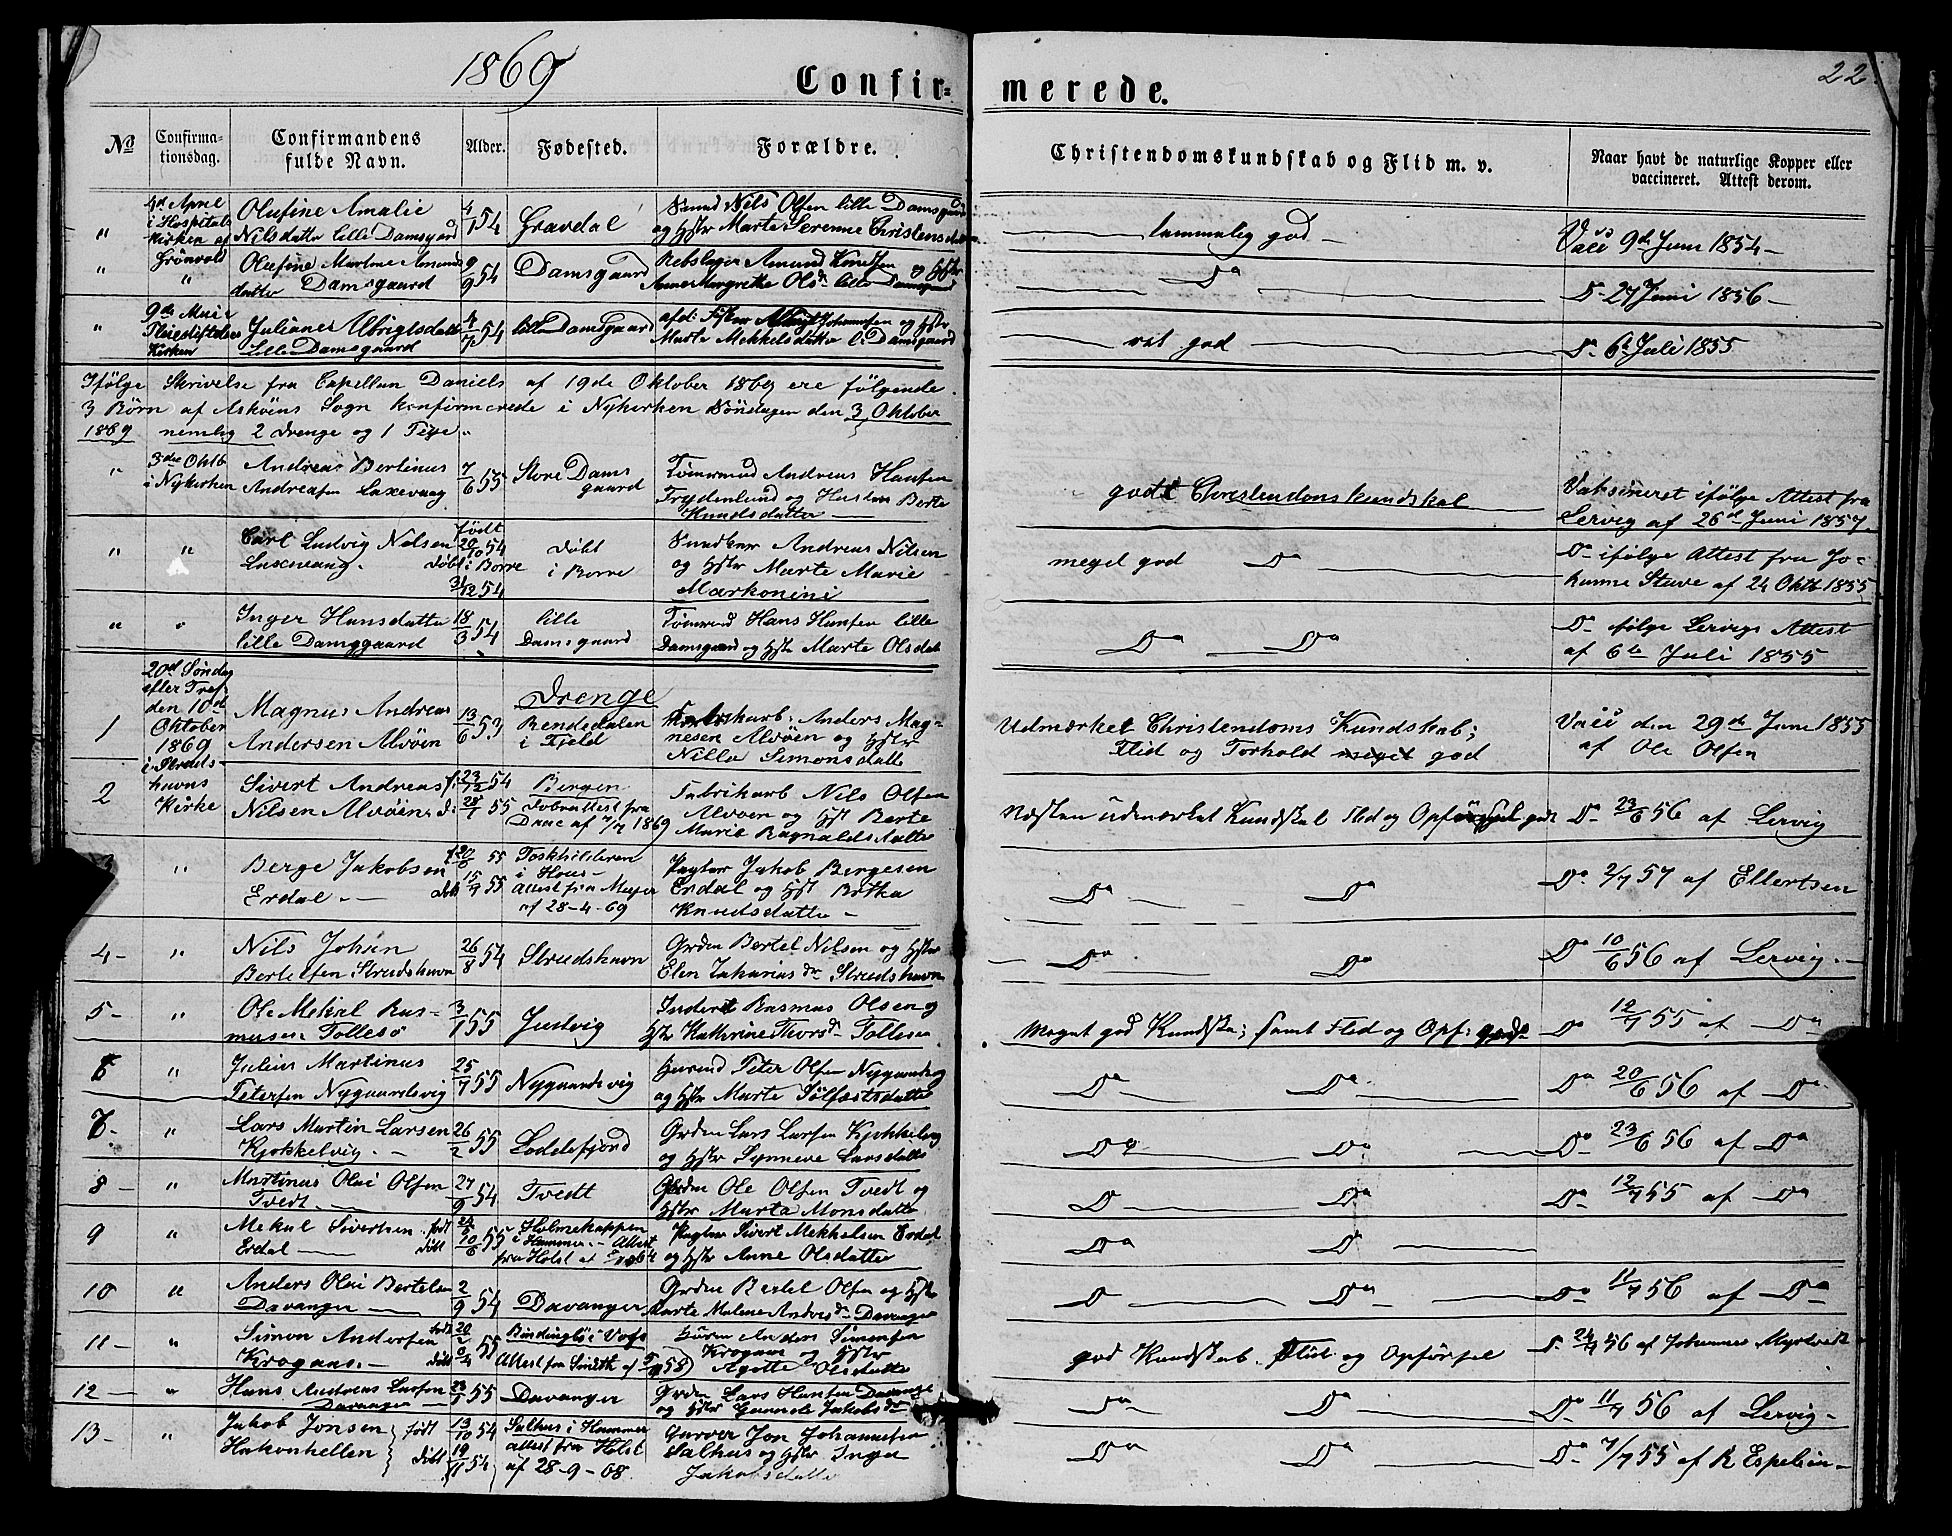 1869
22
Confir= merede.
No
Confirma-
tionsdag.
Confirmandens
fulde Navn.
Alder.
Fødested.
Forældre.
Christendomskundskab og Flid m. v.
Naar havt de naturlige Kopper eller
vaccineret. Attest derom.
"
4d April
i Hospitals
Kirken af
Grønvold
Olufine Amalie
Nilsdatter lille Damsgård
4/1 54
Gravdal
Nils Olsen lille Damsgaard
og Hstr Marte Serenne Christensdatter
temmelig god
Vacc 9de Juni 1854
"
"
Olufine Martine Amunds
datter Damsgaard
9/9 54
Damsgaard
Rebslager Amund Knudsen og Hstr
Anne Margrethe Olsdr lille Damsgaard
Do
D. 27 Juni 1856
"
9de Mai i
Kirken
Juliane Ulrigtsdatter
Lille Damsgaard
4/7 54
lille Damsgaard
afd: Fisker Johannesen og Hstr
Marte Mekkelsdatter l. Damsgaard
ret god
D. 6te Juli 1855
Ifølge Skrivelse fra Capellan Daniels af 19de Oktober 1869 ere følgende
3 Børn af Askøens Sogn konfirmerede i Nykirken Søndagen den 3 Oktober
1869 nemlig 2 Drenge og 1 Pige.
"
3die Oktb
i Nykirken
Andreas Bertinus
Andreasen Laxevaag
7/6 55
Store Dams
gaard
Tømrmd Andreas Hansen
Frydenlund og Hustru Berte
Knudsdatter
godt Christendomskundskab
Vaksineret ifølge Attest fra
Lervig af 26de Juni 1857
"
"
Carl Ludvig Nilsen
Laxevaag.
født
20/10 54
døbt i Borre
31/12 54
døbt
i Borre
Andreas Nilsen
og Hstr Marte Marie
Markonine
meget god Do
Do ifølge Attest fra Jo-
hanne Stave af 24 Oktb 1855
"
"
Inger Hansdatter
lille Damsgaard
18/3 54
lille
Damsgaard
Tømrmd Hans Hansen lille
Damsgaard og Hstr Marte Olsdatr
Do Do
Do ifølge Lervigs Attest
af 6te Juli 1855
Drenge
1
20d Søndag
efter Tref
den 10de
Oktober
1869
i Struds-
havns
Kirke
Magnus Andreas
Andersen Alvøen
13/6 53
Rendedalen
i Fjeld
Anders Mag-
nesen Alvøen og Hstr
Nille Simonsdatter
Udmærket Christendoms Kundskab;
Flid og Forhold meget god
Vacc den 29de Juni 1855
af Ole Olsen
2
Sivert Andreas
Nilsen Alvøen
f: 23/12 54
d: 28/1 55
Bergen
Døbeattest fra
Daae af 7/7 1869
Fabrikarb Nils Olsen
Alvøen og Hst Berte
Marie Ragnaldsdatter
Næsten udmærket Kundskab Flid og Opførsel god
Do 23/6 56 af Lervig
3
"
Berge Jakobsen
Erdal
f. 20/6 55
døbt 15/7 55
i Hous
Attest fra Meyer
af 28-4-69
Pagter Jakob Bergesen
Erdal og Hst Britha
Knudsdatter
Do Do
Do 2/7 57 af Ellertsen
4
"
Nils Johan
Bertelsen Strudshavn
26/8 54
Strudshavn
Grden Bertel Nilsen og Hstr
Elen Zakarias dr Strudshavn
Do Do
Do 10/6 56 af Lervig
5
"
Ole Mekal Ras-
musen Follesø
3/1 55
Judvig
Inderst Rasmus Olsen og
Hstr Kathrine Thorsdr Follesø
Meget god Kundska; samt Flid og Opf: god
Do 12/7 55 af Do
6
"
Julius Martinus
Petersen Nygaardsvig
25/7 55
Nygaardsvig
Husmd Peter Olsen Nygaardsvig
og Hstr Marte Sølfæstsdatter
Do Do
Do 20/6 56 af Do
7
"
Lars Martin Larsen
Kjøkkelvig
26/2 55
Loddefjord
Grden Lars Larsen Kjøkkelvig
og Hstr Synneve Larsdatter
Do Do
Do 23/6 56 af Do
8
"
Martinus Olai Olsen
Tvedt
27/9 54
Tvedt
Grden Ole Olsen Tvedt og
Hstr Marta Monsdatter
Do Do
Do 12/7 55 af Do
9
"
Mekal Sivertsen
Erdal
født
døbt 10/6 55
Holmekappen
i Hammer - Attest
fra Holst af
Pagter Sivert Mekkelsen Erdal
og Hstr Anne Olsdatter
Do Do
10
"
Anders Olai Bertelsen
Davanger
2/9 54
Davanger
Grden Bertel Olsen og Hstr
Marte Malene Andersdr Davanger
Do Do
Do 11/7 56 af Do
11
"
Simon Andersen
Krogaas
født
døbt
55
i Voss
Attest fra Smith af
Anders Simonsen
Krogaas og Hstr
Agotte Olsdatter
god Kundskab, Flid og Opførsel
D. 24/7 56 af Johannes Myrtvedt
12
"
Hans Andreas Larsen
Davanger
55
Davanger
Grden Lars Hansen Davanger
og Hstr Gunnele Jakobsdr
Do Do
Do 11/7 56 af Lervig
13
"
Jakob Jonsen
Hakonhellen
født 13/10 54
døbt 19/11 54
Salhus i Hammer
attest fra Holst
af 28-9-68
Garver Jon Johannesen
Salhus og Hstr Inga
Jakobsdatter
Do Do
Do 7/7 55 af R Espelien